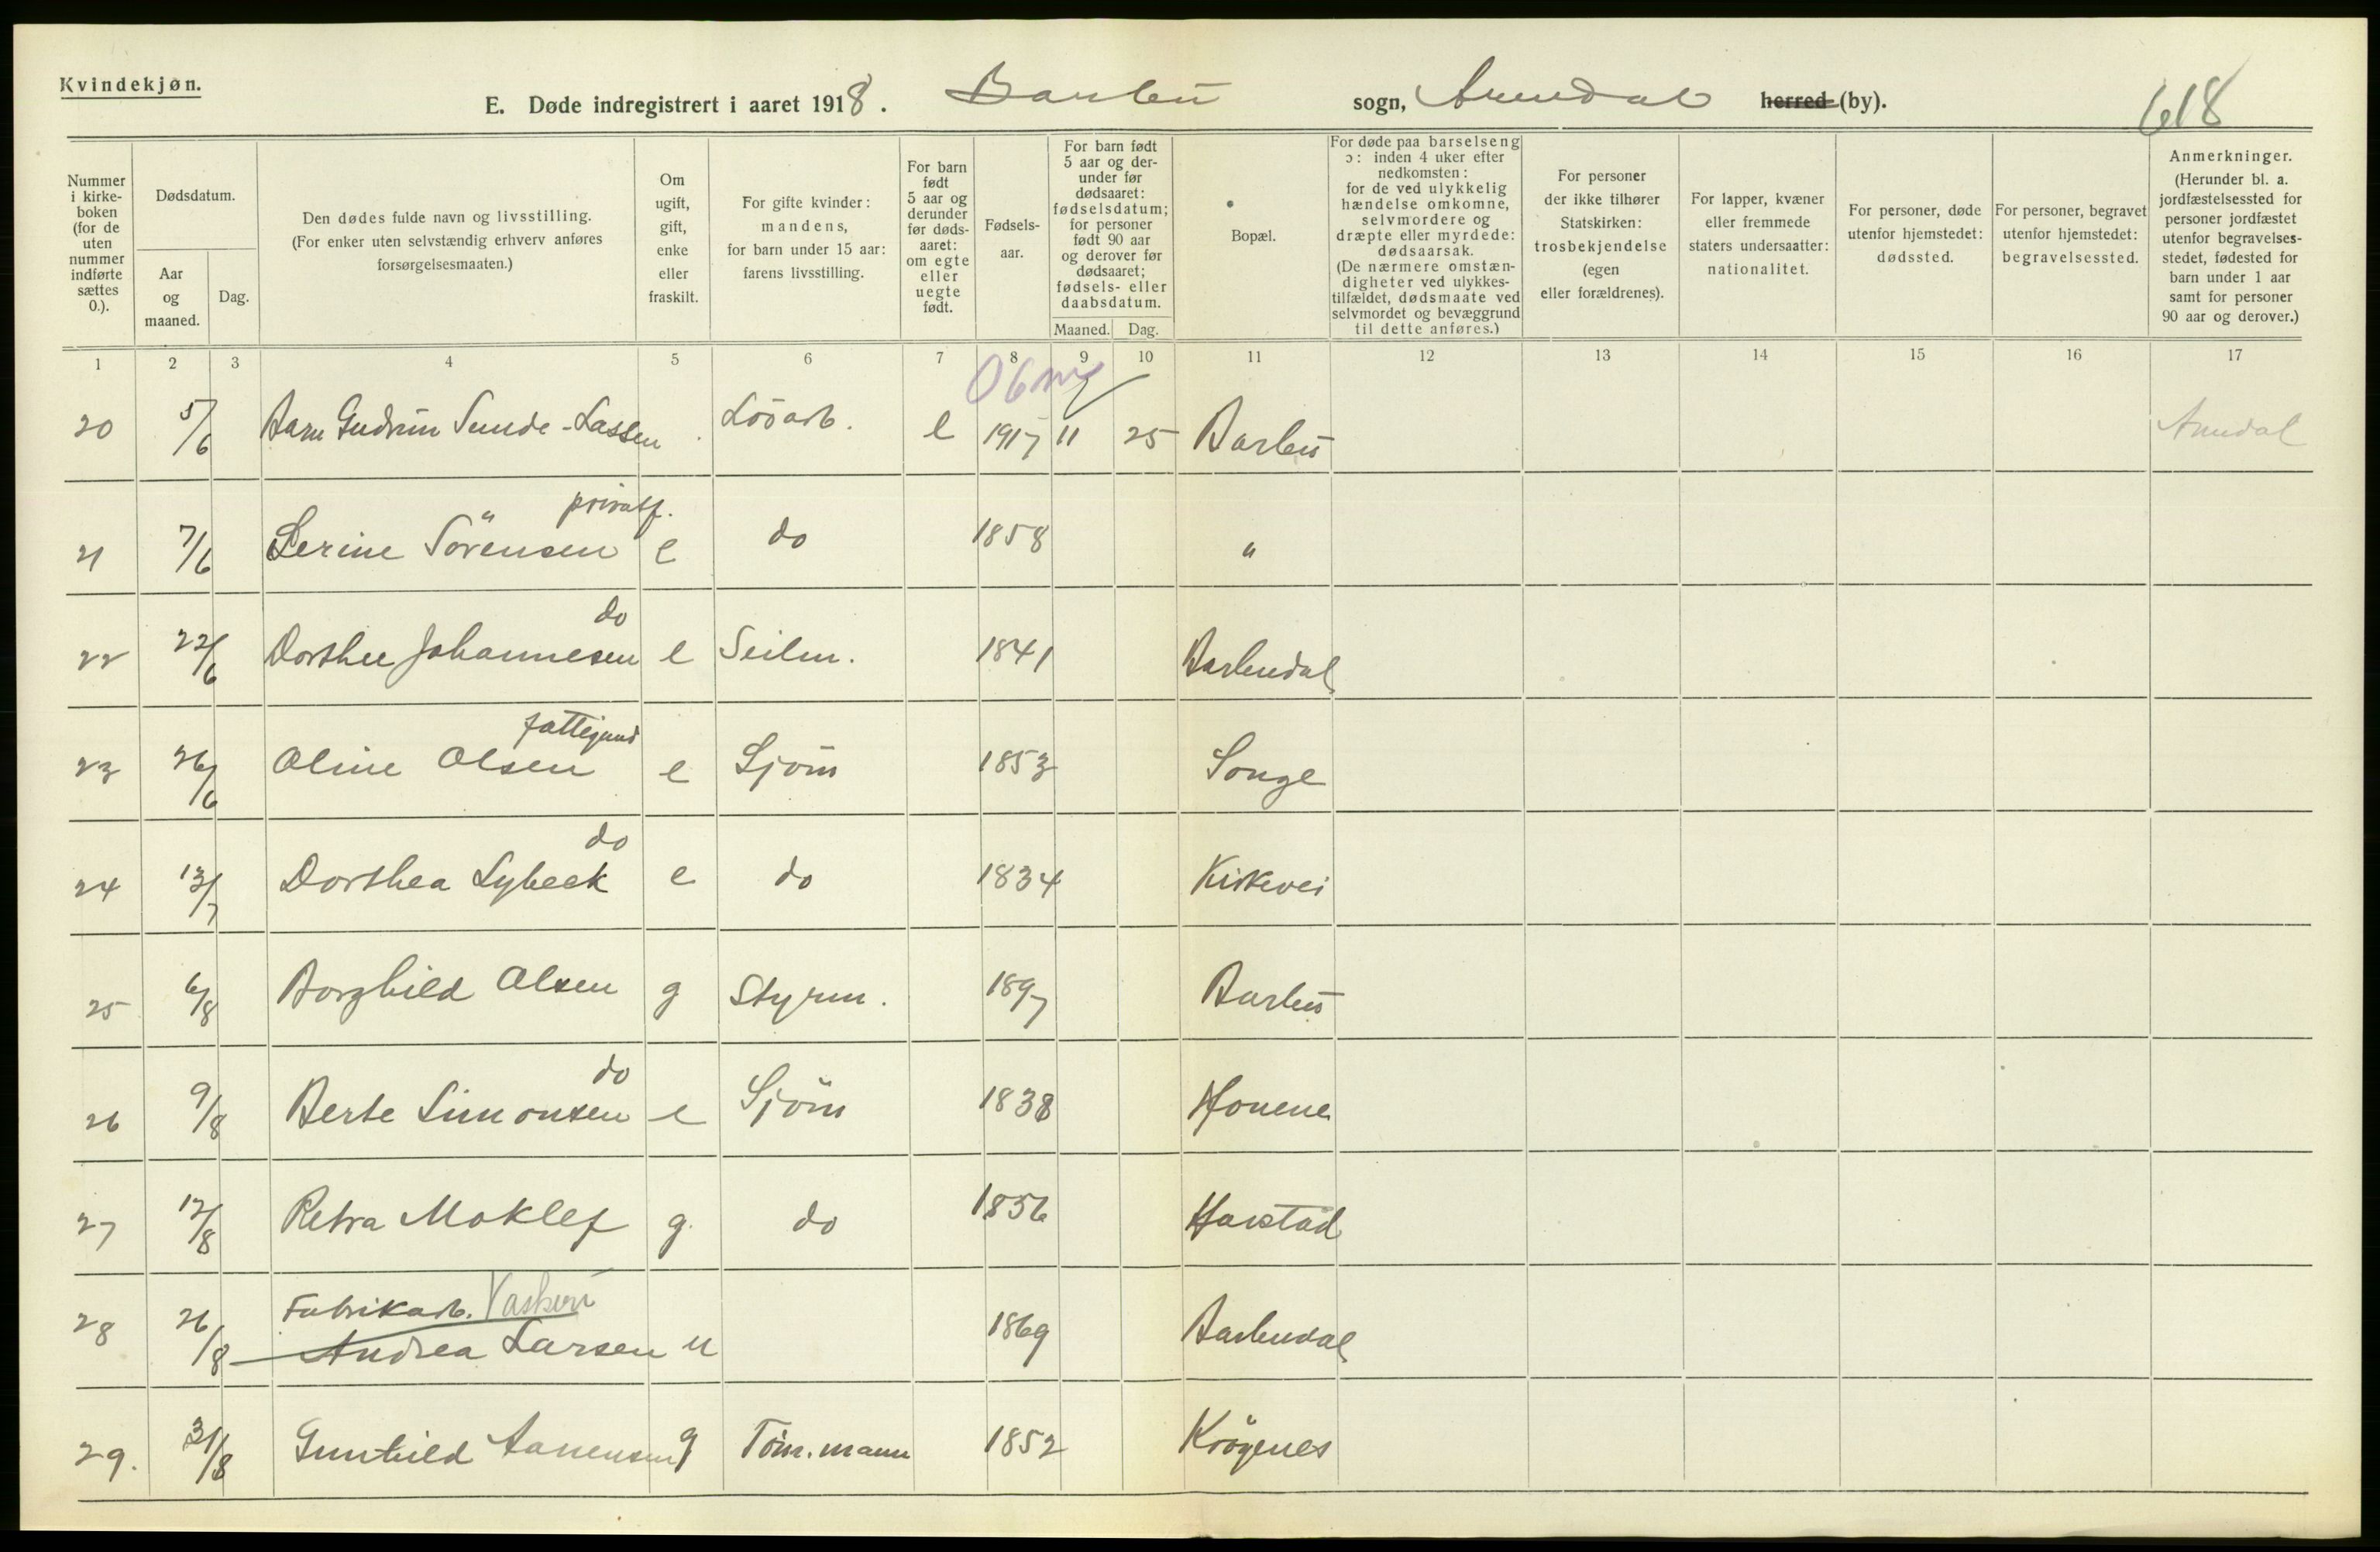 Kvindekjøn.
E. Døde indregistrert i aaret 1918. Barbu sogn, Arendal herred (by). 618
Nummer i kirkeboken (for de uten nummer indførte sættes 0.).
Dødsdatum.
Aar og maaned.
Dag.
Den dødes fulde navn og livsstilling. (For enker uten selvstændig erhverv anføres forsørgelsesmaaten.)
Om ugift, gift, enke eller fraskilt.
For gifte kvinder: mandens, for barn under 15 aar: farens livsstilling.
For barn født 5 aar og derunder før dødsaaret: om egte eller uegte født.
Fødselsaar.
For barn født 5 aar og derunder før dødsaaret: fødselsdatum; for personer født 90 aar og derover før dødsaaret; fødsels- eller daabsdatum.
Maaned. Dag.
Bopæl.
For døde paa barselseng ɔ: inden 4 uker efter nedkomsten: for de ved ulykkelig hændelse omkomne, selvmordere og dræpte eller myrdede: dødsaarsak. (De nærmere omstændigheter ved ulykkestilfældet, dødsmaate ved selvmordet og bevæggrund til dette anføres.)
For personer der ikke tilhører Statskirken: trosbekjendelse (egen eller forældrenes).
For lapper, kvæner eller fremmede staters undersaatter: nationalitet.
For personer, døde utenfor hjemstedet: dødssted.
For personer, begravet utenfor hjemstedet: begravelsessted.
Anmerkninger. (Herunder bl. a. jordfæstelsessted for personer jordfæstet utenfor begravelsesstedet, fødested for barn under 1 aar samt for personer 90 aar og derover.)
1 2 3 4 5 6 7 8 9 10 11 12 13 14 15 16 17
06
20 5/6 Gudrun Sunde-Lassen Lösarb. e 1917 11 25 Barbu Arendal
privatf.
21 7/6 Serine Sörensen e do 1858 "
do
22 22/6 Dorthee Johannesen e Seilm. 1841 Barbudal
fattigund
23 26/6 Oline Olsen e Sjöm 1853 Songe
do
24 13/7 Dorthea Lybeck e do 1834 Kirkevei
25 6/8 Borghild Olsen g Styrm. 1897 Barbu
do
26 9/8 Berte Simonsen e Sjöm 1838
27 12/8 Petra Moklef g. do 1856 Harstad
Fabrikarb. Vaskeri
28 26/8 Andrea Larsen u 1869 Barbudal
29. 31/8 Gunhild Aanensen g Töm.mann 1852 Krögenes